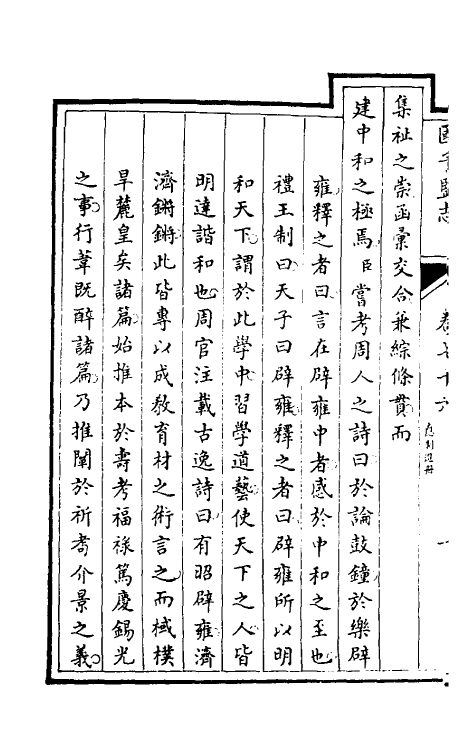 集祉之崇函彙交合兼綜條貫而
建中和之極焉臣嘗考周人之詩曰於論鼓鐘於樂辟
雍釋之者曰言在辟雍中者感於中和之至也
禮王制曰天子曰辟雍釋之者曰辟雍所以明
和天下謂於此學中習學道藝使天下之人皆
明達諧和也周官注載古逸詩曰有昭辟雍濟
濟鏘鏘此皆專以成教育材之術言之而棫樸
旱麓皇矣諸篇始推本於壽考福祿篤慶錫光
之事行葦既醉諸篇乃推闡於祈耇介景之義